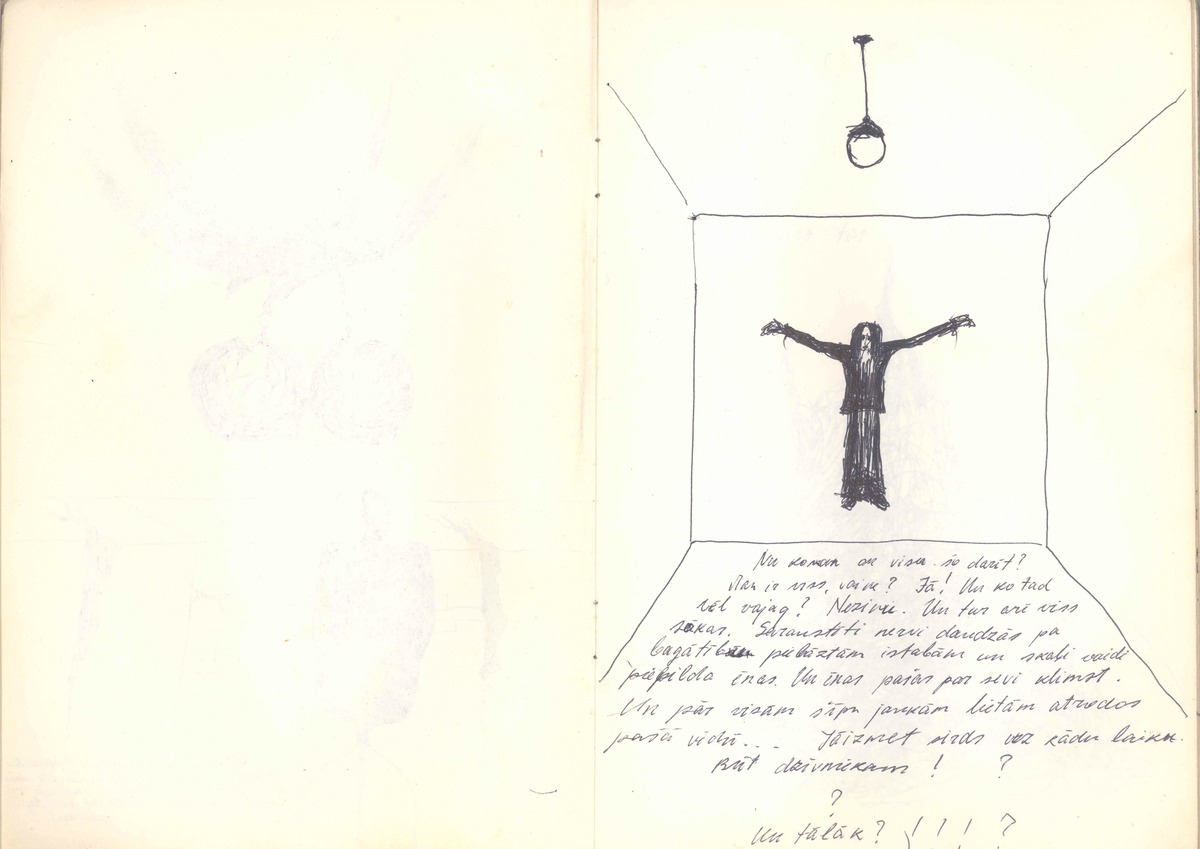 Nu koman ar visu šo darīt?
Man ir viss, vai ne? Jā! Un ko tad
vēl vajag? Nezinu. Un tur arī viss
sākas. Saraustīti nervi daudzās pa
bagātībām piebāztām istabām un skaļi vaidi
piepilda ēnas. Un ēnas pašas par sevi klimst.
Un pār visām šīm jaukām lietām atrodos
pašā vidū... Jāizmet sirds uz kādu laiku.
Būt dzīvniekam ! ?
?
Un tālāk? ! ! ! ?